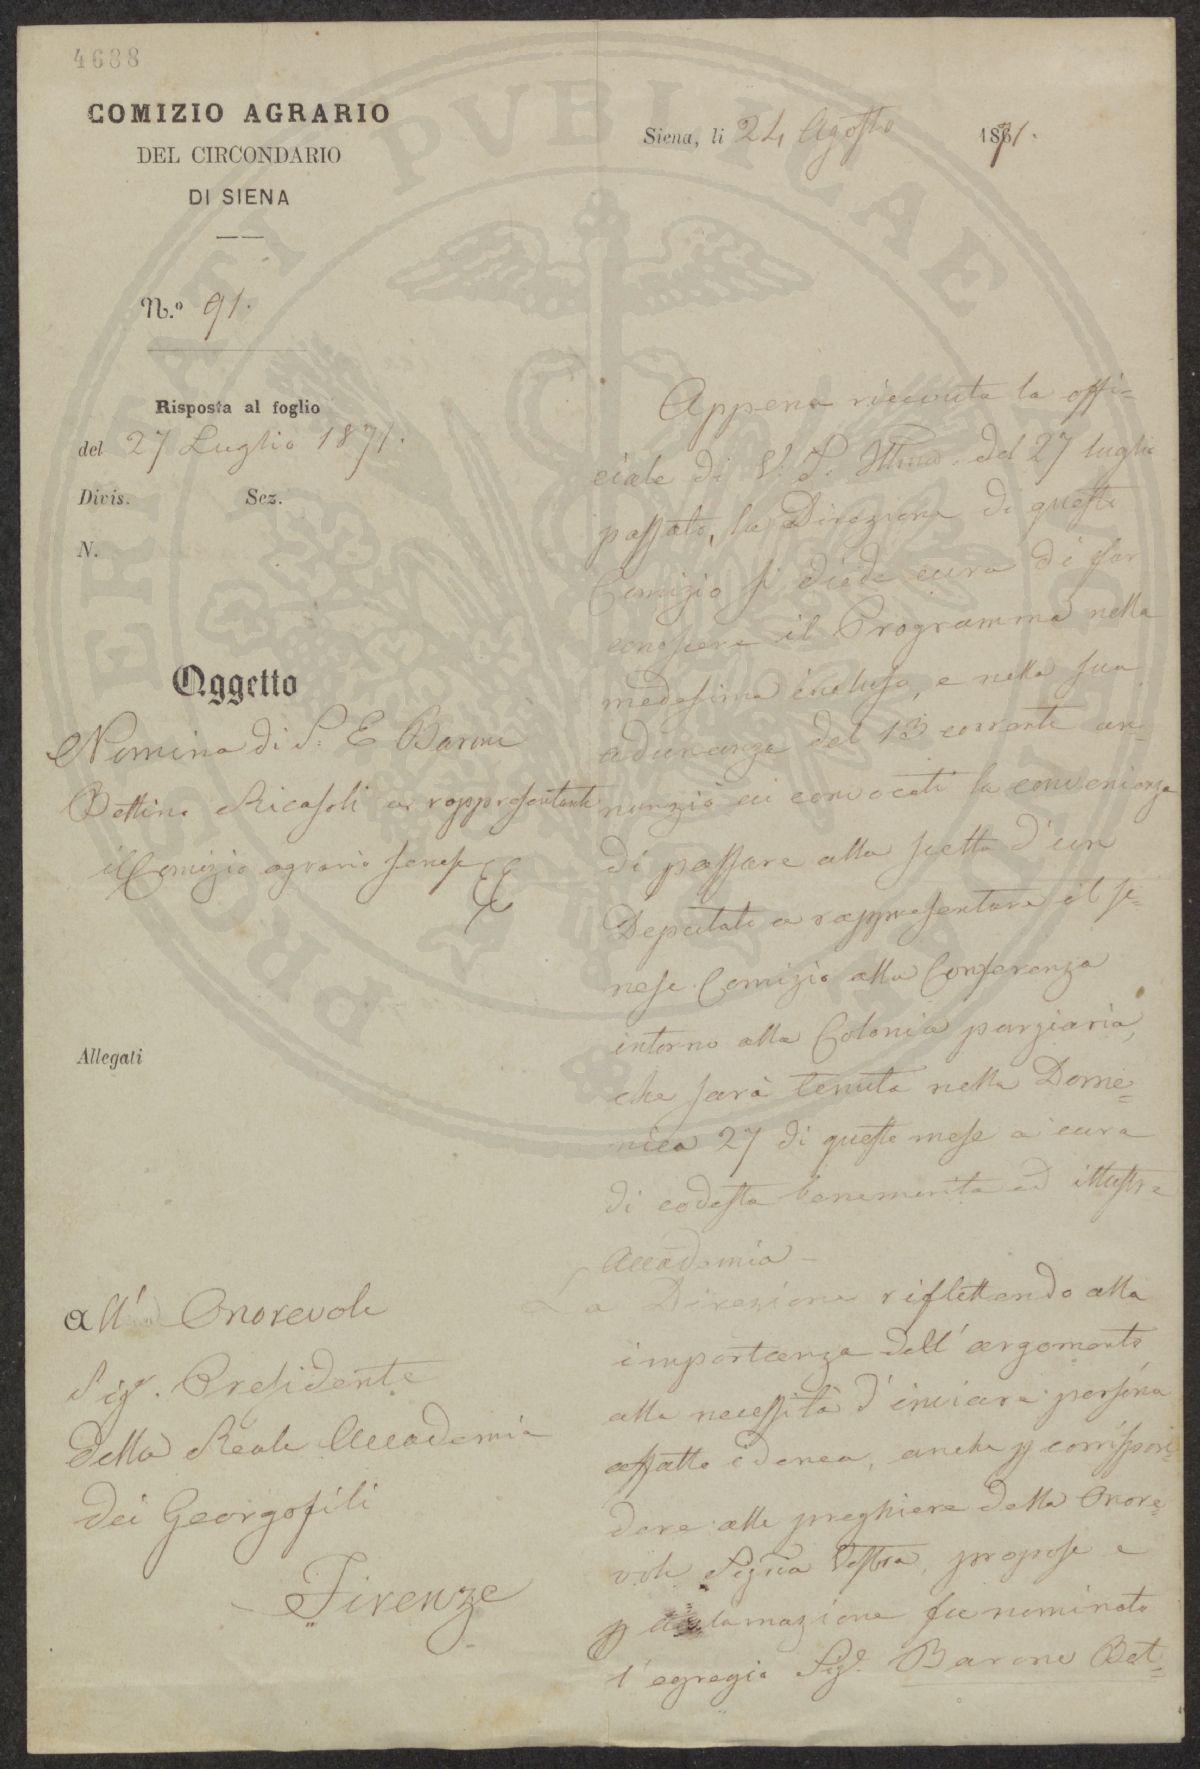 4638
COMIZIO AGRARIO
DEL CIRCONDARIO
DI SIENA
Siena, li 24 Agosto 1871.
N.º 91.
Risposta al foglio
del 27 Luglio 1871.
Divis. Sez.
N.
Oggetto
Nomina di S. E Barone
Bettino Ricasoli a rappresentante
il Comizio agrario senese
Allegati
all' Onorevole
Sigr. Presidente
della Reale Accademia
dei Georgofili
Firenze
Appena ricevuta la offi=
ciale di V. S. Illma. del 27 luglio
passato, la Direzione di questo
Comizio si diede cura di far
conoscere il Programma nella
medesima incluso, e nella sua
adunanza del 13 corrente an=
nunziò ai convocati la convenienza
di passare alla scelta d'un
Deputato a rappresentare il se=
nese Comizio alla Conferenza
intorno alla Colonia parziaria,
che sarà tenuta nella Dome=
nica 27 di questo mese a cura
di codesta benemerita ed illustre
Accademia –
La Direzione riflettendo alla
importanza dell'argomento
alla necessità d'inviare persona
affatto idonea, anche p corrispon=
dere alle preghiere della Onore=
vole Signia Vostra, propose e
p acclamazione fu nominato
l'egregio Sigr. Barone Bet=
PRO PERITASI PVBLICAE